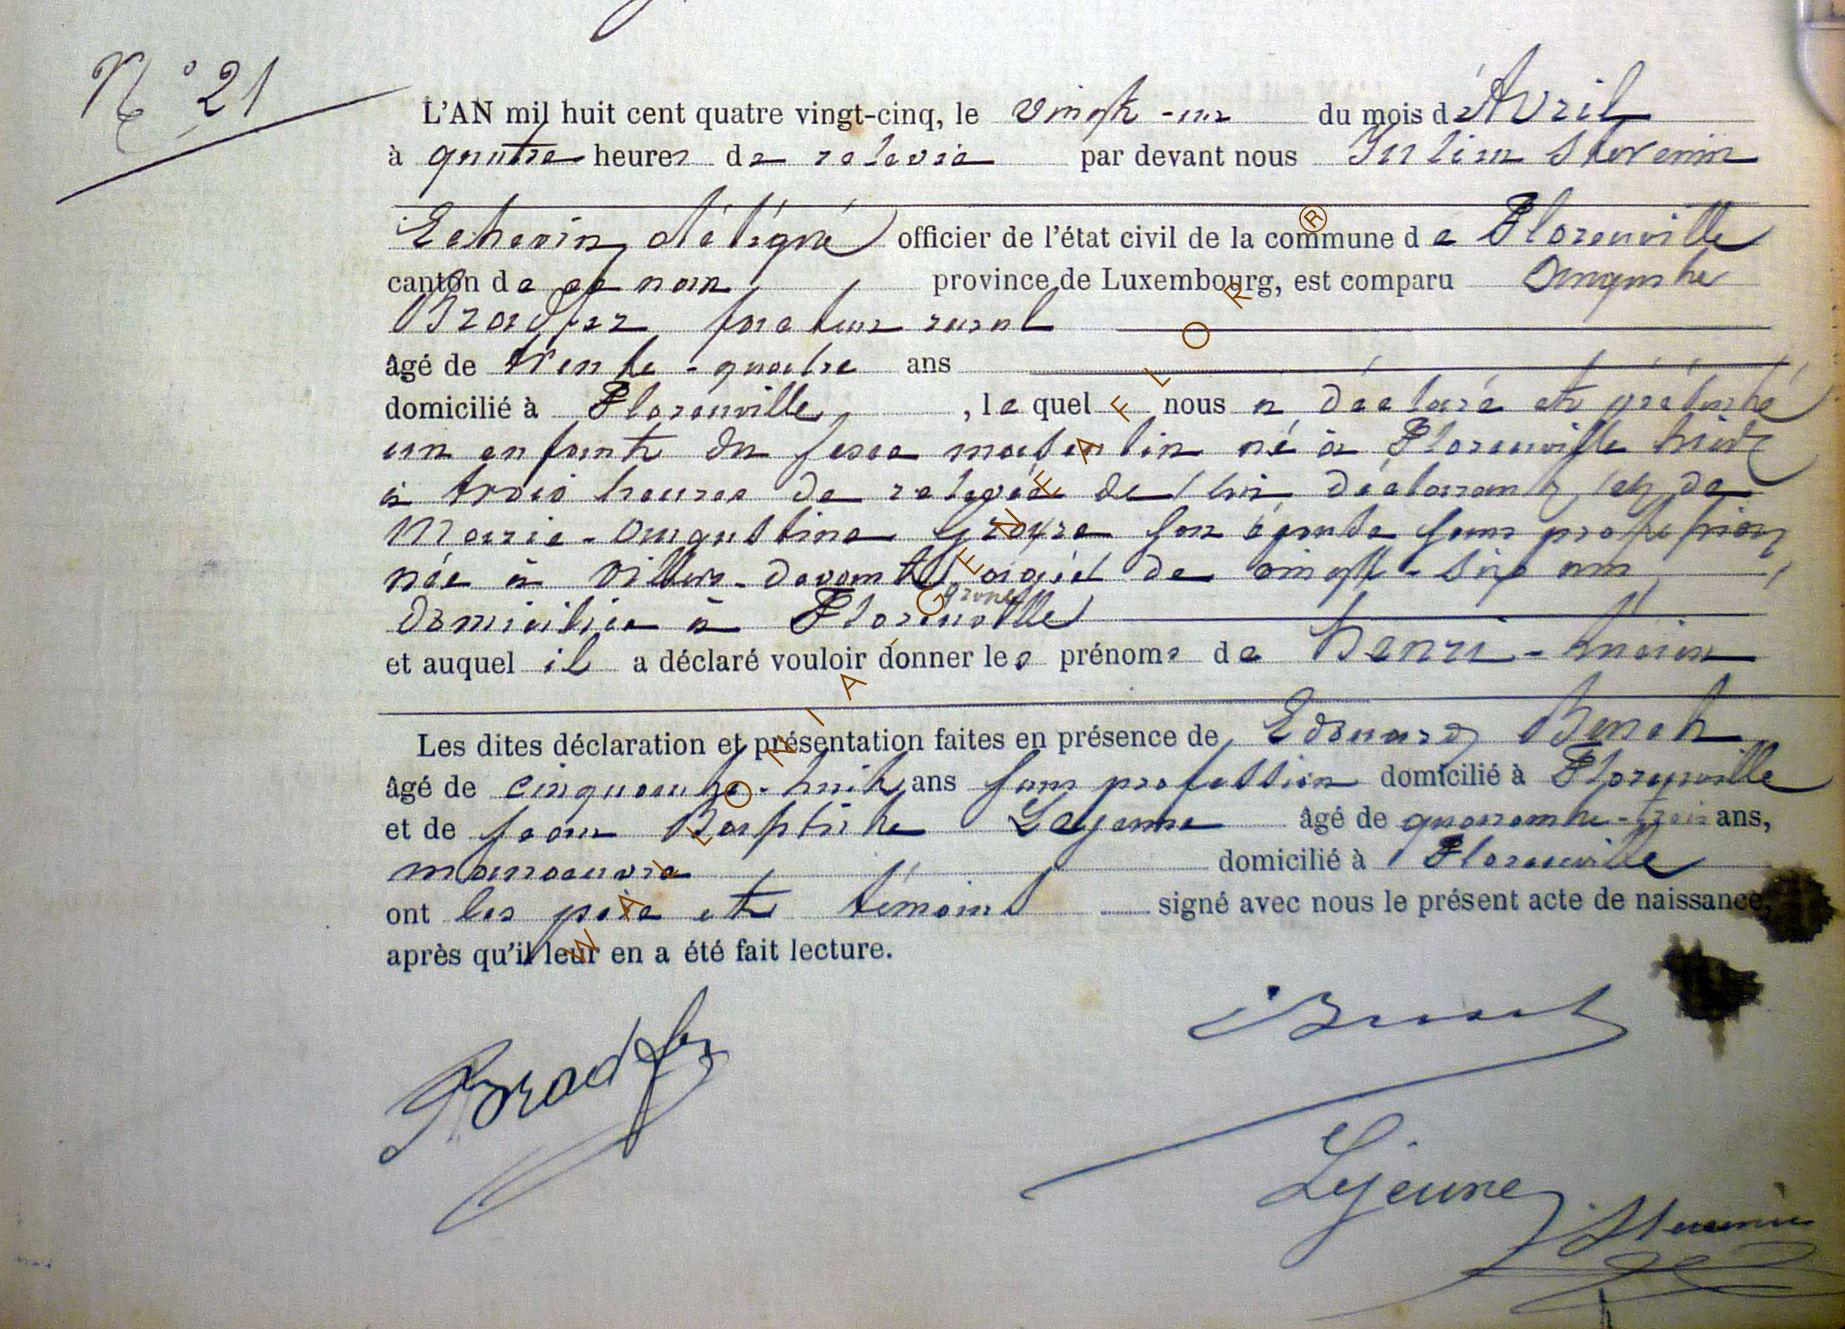 N° 21
L'AN mil huit cent quatre vingt-cinq, le vingt-un du mois d'Avril
à quatre heures de relevée par devant nous Julien
Echevin délégué officier de l'état civil de la commune de Florenville
canton de ce nom province de Luxembourg, est comparu Auguste
Bradfer facteur rural
âgé de trente-quatre ans
domicilié à Florenville, lequel nous a déclaré et présenté
un enfant du sexe masculin né à Florenville hier
à trois heures de relevée de lui déclarant et de
Marie-Augustine son épouse sans profession
née à Villers-devant orval âgée de vingt-six ans
domiciliée à Florenville
et auquel il a déclaré vouloir donner les prénoms de Henri-
Les dites déclaration et présentation faites en présence de Edouard
âgé de cinquante-huit ans sans profession domicilié à Florenville
et de Jean Baptiste Lejeune âgé de quarante-trois ans,
manoeuvre domicilié à Florenville
ont les père et témoins signé avec nous le présent acte de naissance,
après qu'il leur en a été fait lecture.
Bradfer
Lejeune
WALLONIA GENEAFLOR ®